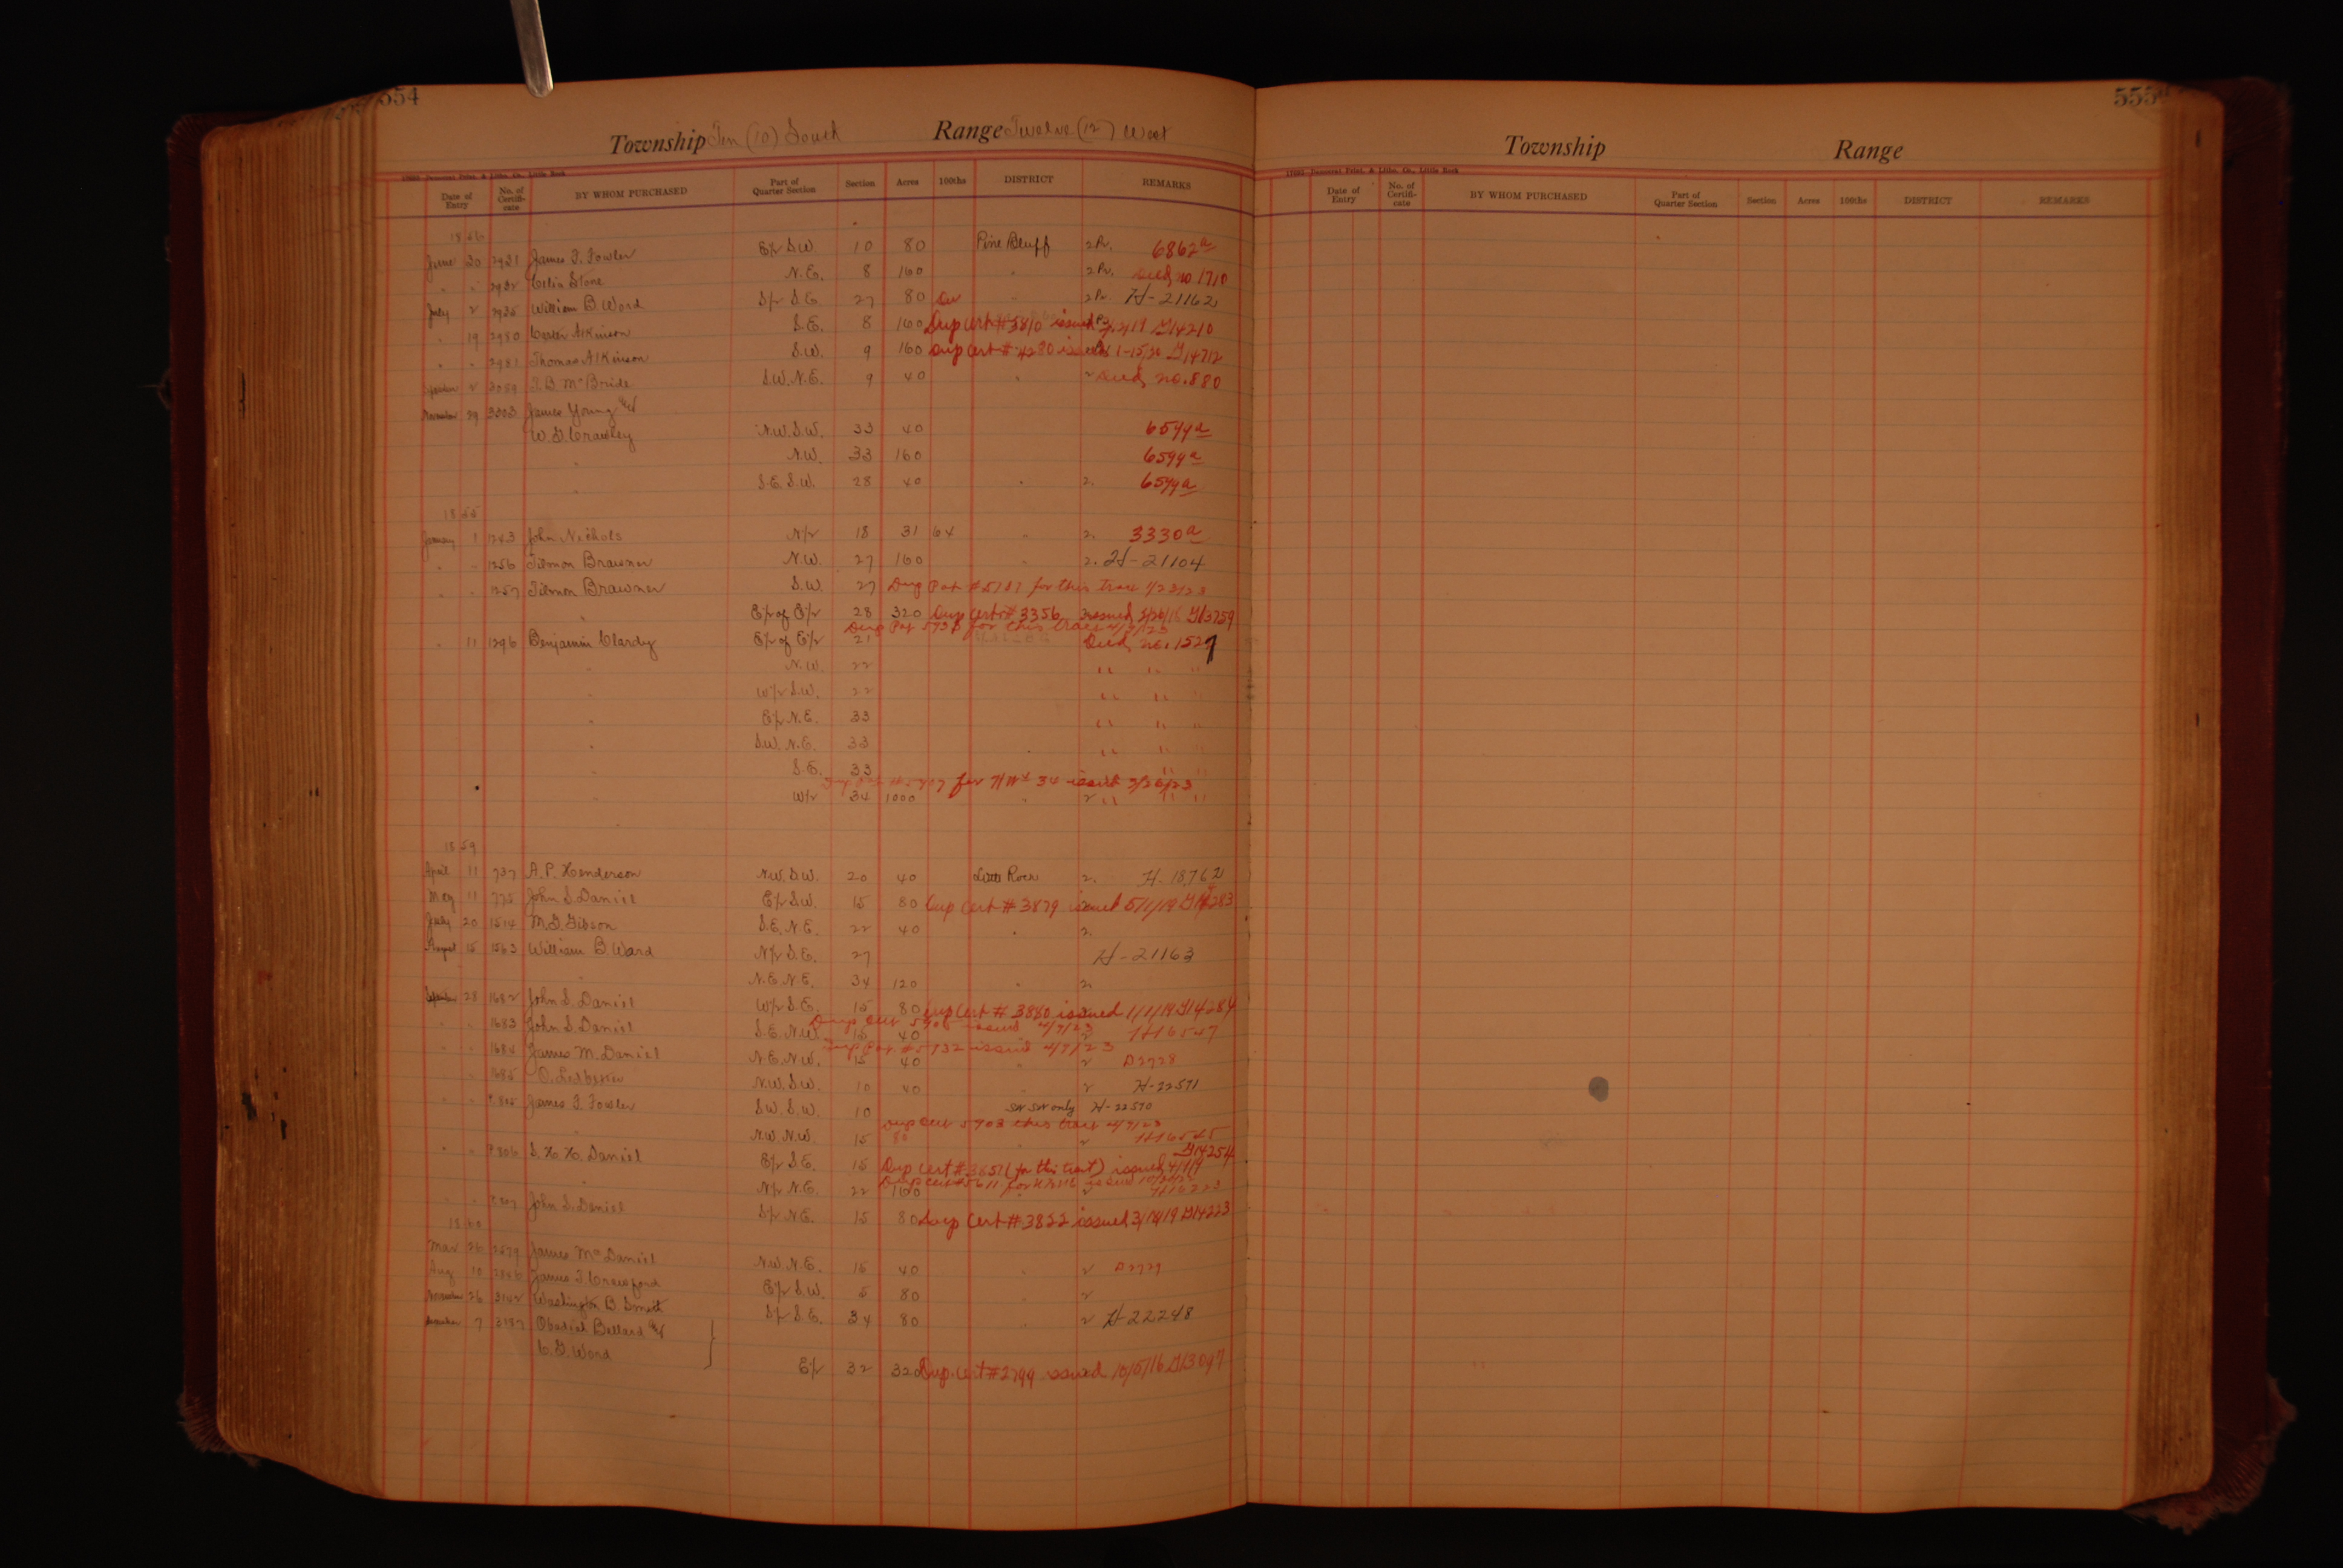 554
Township Ten (10) South Range Twelve (12) West
Date of Entry No. of Certifi-cate BY WHOM PURCHASED Part of Quarter Section Section Acres 100ths DISTRICT REMARKS
1856
June 20 2921 James T. Fowler E/2 S.W. 10 80 Pine Bluff 2 Pr. 6862 a
" " 2922 Stone N.E. 8 160 " 2 Pr. Deed no 1710
July 2 2935 William B Word S/2 S.E. 27 80 " 2 Pr. H-21162
" 19 2980 Atkinson S.E. 8 160 Dup Cert # 3810 issued G14210
" " 2981 Thomas Atkinson S.W. 9 160 Dup Cert # 4280 issued 1-15/20 G14712
September 2 3089 T. B. McBride S.W. N.E. 9 40 " 2 Deed no. 880
November 29 3303 James Young and
W. G. Crawley N.W. S.W. 33 40
" N.W. 33 160
" S.E. S.W. 28 40 " 2.
1855
January 1 1243 John Nichols N/2 18 31 64 " 2. 3330 a
" " 1256 Tilmon Brawner N.W. 27 160 " 2. H-21104
" " 1257 Tilmon Brawner S.W. 27 Dup Pat #5187 for this tract 1/23/23
" E/2 of E/2 28 320 Dup Cert # 3356 issued G13759
Dup Pat for this tract
" 11 1296 Benjamin Clardy E/2 of E/2 21 Deed no. 1527
" N.W. 22 " " "
" W/2 S.W. 22 " " "
" E/2 N.E. 33 " " "
" S.W. N.E. 33 " " "
" S.E. 33 " "
for 34 issued 3/26/23
" W/2 34 1000 " 2 " " "
1859
April 11 737 A. P. Henderson N.W. S.W. 20 40 Little Rock 2. H-18762
May 11 775 John S. Daniel E/2 S.W. 15 80 Dup Cert # 3879 issued 5/1/19 G14283
July 20 1514 M. T. Gibson S.E. N.E. 22 40 " 2
August 15 1563 William B. Ward N/2 S.E. 27 H-21163
" N.E. N.E. 34 120 " 2
September 28 1682 John S. Daniel W/2 S.E. 15 80 Dup Cert # 3880 issued 1/1/19 G14284
Dup Cert issued 4/9/23
" " 1683 John S. Daniel S.E. N.W. 15 40 2 H16547
Dup Pat #5732 issued 4/9/23
" " 1684 James M. Daniel N.E. N.W. 15 40 " 2 D2728
" " 1685 O. Ledbetter N.W. S.W. 10 40 " 2 H-22571
" " James T. Fowler S.W. S.W. 10 SW SW only H-22570
Dup Cert 5708 this tract 4/9/23
" N.W. N.W. 15 80 " 2 H16545
G14254
" " S. H. H. Daniel E/2 S.E. 15 Dup Cert # 3851 (for this tract) issued 4/1/19
Dup Cert issued
" N/2 N.E. 22 160 " 2
" " John S. Daniel S/2 N.E. 15 80 Dup Cert # 3822 issued G14223
1860
Mar 26 2579 James Mc Daniel N.W. N.E. 15 40 " 2 D2729
Aug 10 James T. Crawford E/2 S.W. 5 80 " 2
November 26 3142 Washington B. Smith S/2 S.E. 34 80 " 2 H22248
December 7 3187 Obadiah Bullard and
C. G. Word E/2 32 320 Dup. Cert # 2799 issued 10/5/16 G13097
555
Township Range
Date of Entry No. of Certifi-cate BY WHOM PURCHASED Part of Quarter Section Section Acres 100ths DISTRICT REMARKS